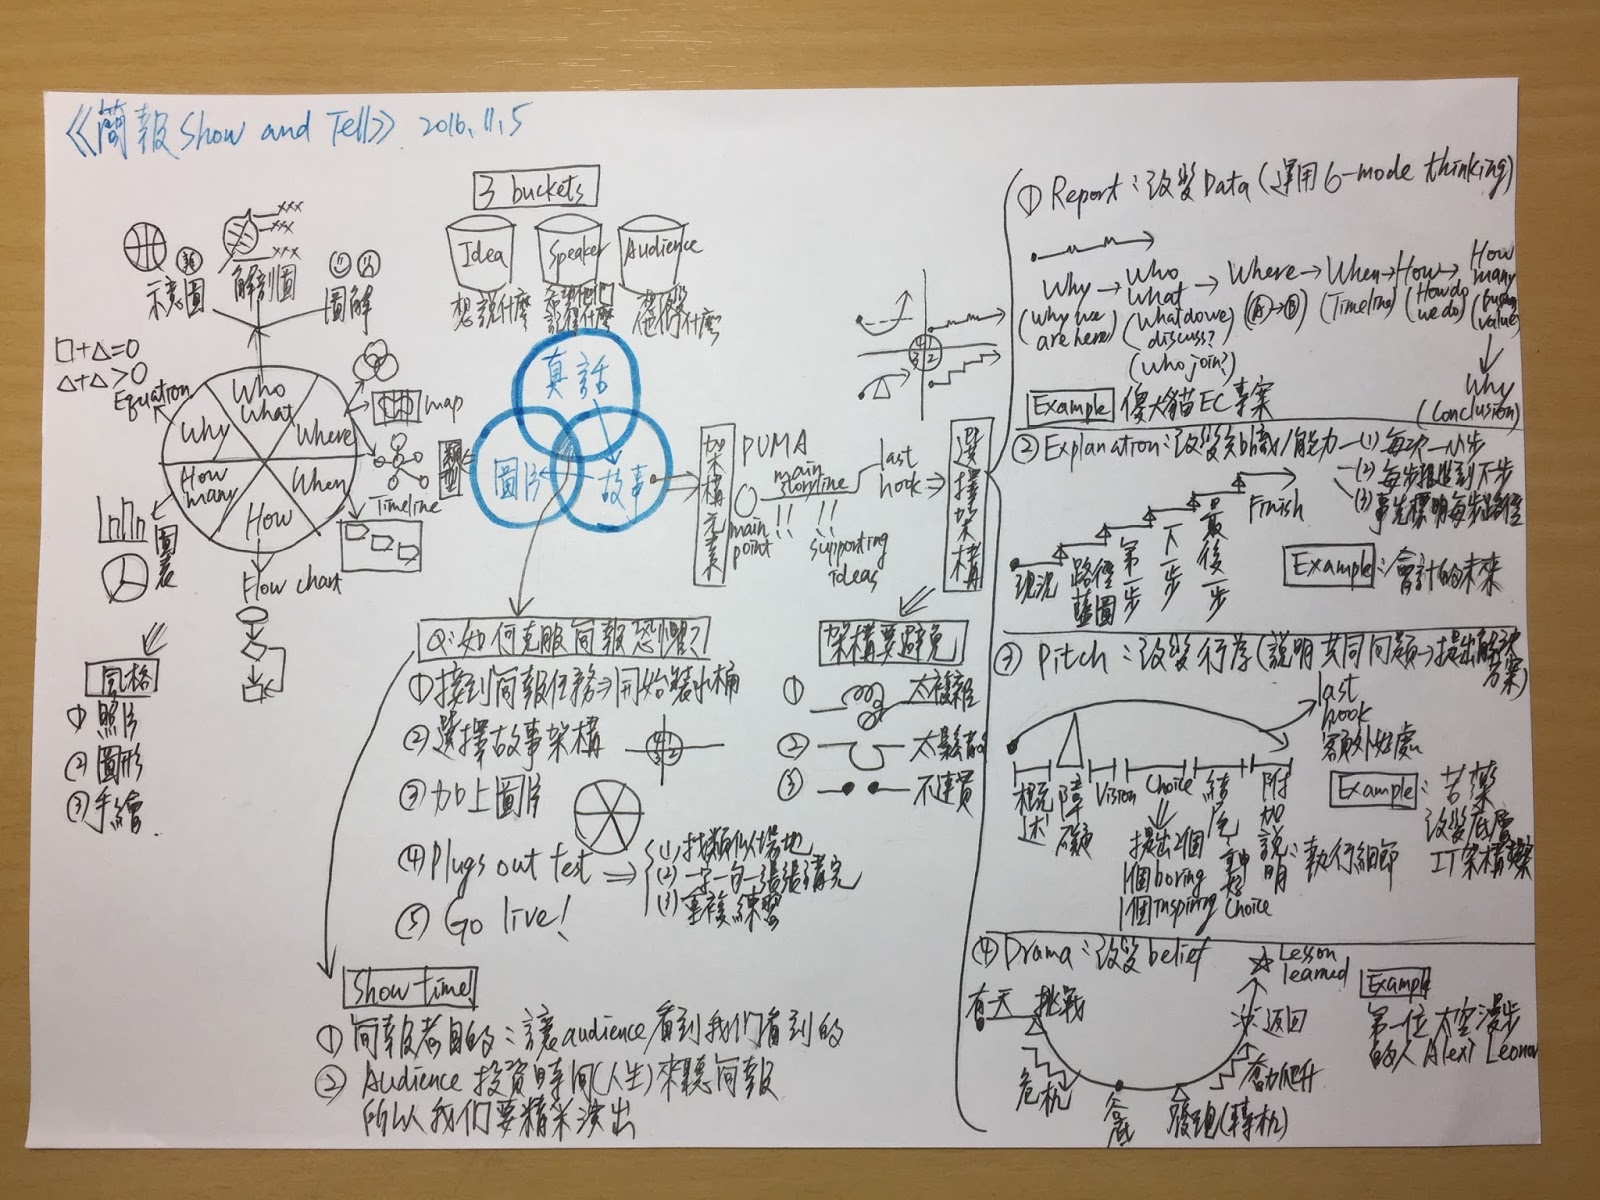 《簡報 Show and Tell》 2016.11.5
3 buckets
Idea
Speaker
Audience
想說什麼
真話
圖片
故事
示意圖
解剖圖
xxx
xxx
xxx
圖解
□+△=0
△+△>0
Equation
Who
What
Where
When
How
How
many
Why
map
Timeline
類型
圖表
Flow chart
風格
① 照片
② 圖形
③ 手繪
架構元素
PUMA
main
point
main
storyline
supporting
ideas
last
hook
選擇架構
Q:如何克服简報恐懼?
①接到简報任務⇒開始裝水桶
②選擇故事架構
③加上圖片
④Plugs out test
(1)找類似場地
(2)一字一句一張張講完
(3)重複練習
⑤ Go live!
架構要避免
① 太複雜
② 太鬆散
③ 不連貫
Show time!
① 简報者目的:讓audience看到我們看到的
② Audience 投資時间(人生)來聽简報
所以我們要精采演出
① Report:改變Data(運用6-mode thinking)
Why
(Why we
are here)
Who
What
(What do we
discuss?)
(Who join?)
Where
(A→B)
When
(Timeline)
How
(How do
we do)
How
many
value)
Why
(Conclusion)
Example 傻大貓EC專案
② Explanation:改變知識/能力
(1) 每次一小步
(2) 每步推進到下步
(3) 事先標明每步路徑
现況
路徑藍圖
第一步
下一步
最後一步
Finish
Example:會計的未來
③ Pitch:改變行為(說明共同问題→提出解決方案)
last
hook
額外好處
概述
障礙
Vision
Choice
提出2個
1個boring
1個Inspiring
結尾
Choice
附加說明:執行細節
Example:苦藥
改變底層
IT架構
④ Drama:改變belief
有一天
挑戰
危机
谷底
發现(轉机)
奮力爬升
返回
Lesson
learned
Example
第一位太空漫步
的人Alexi Leono